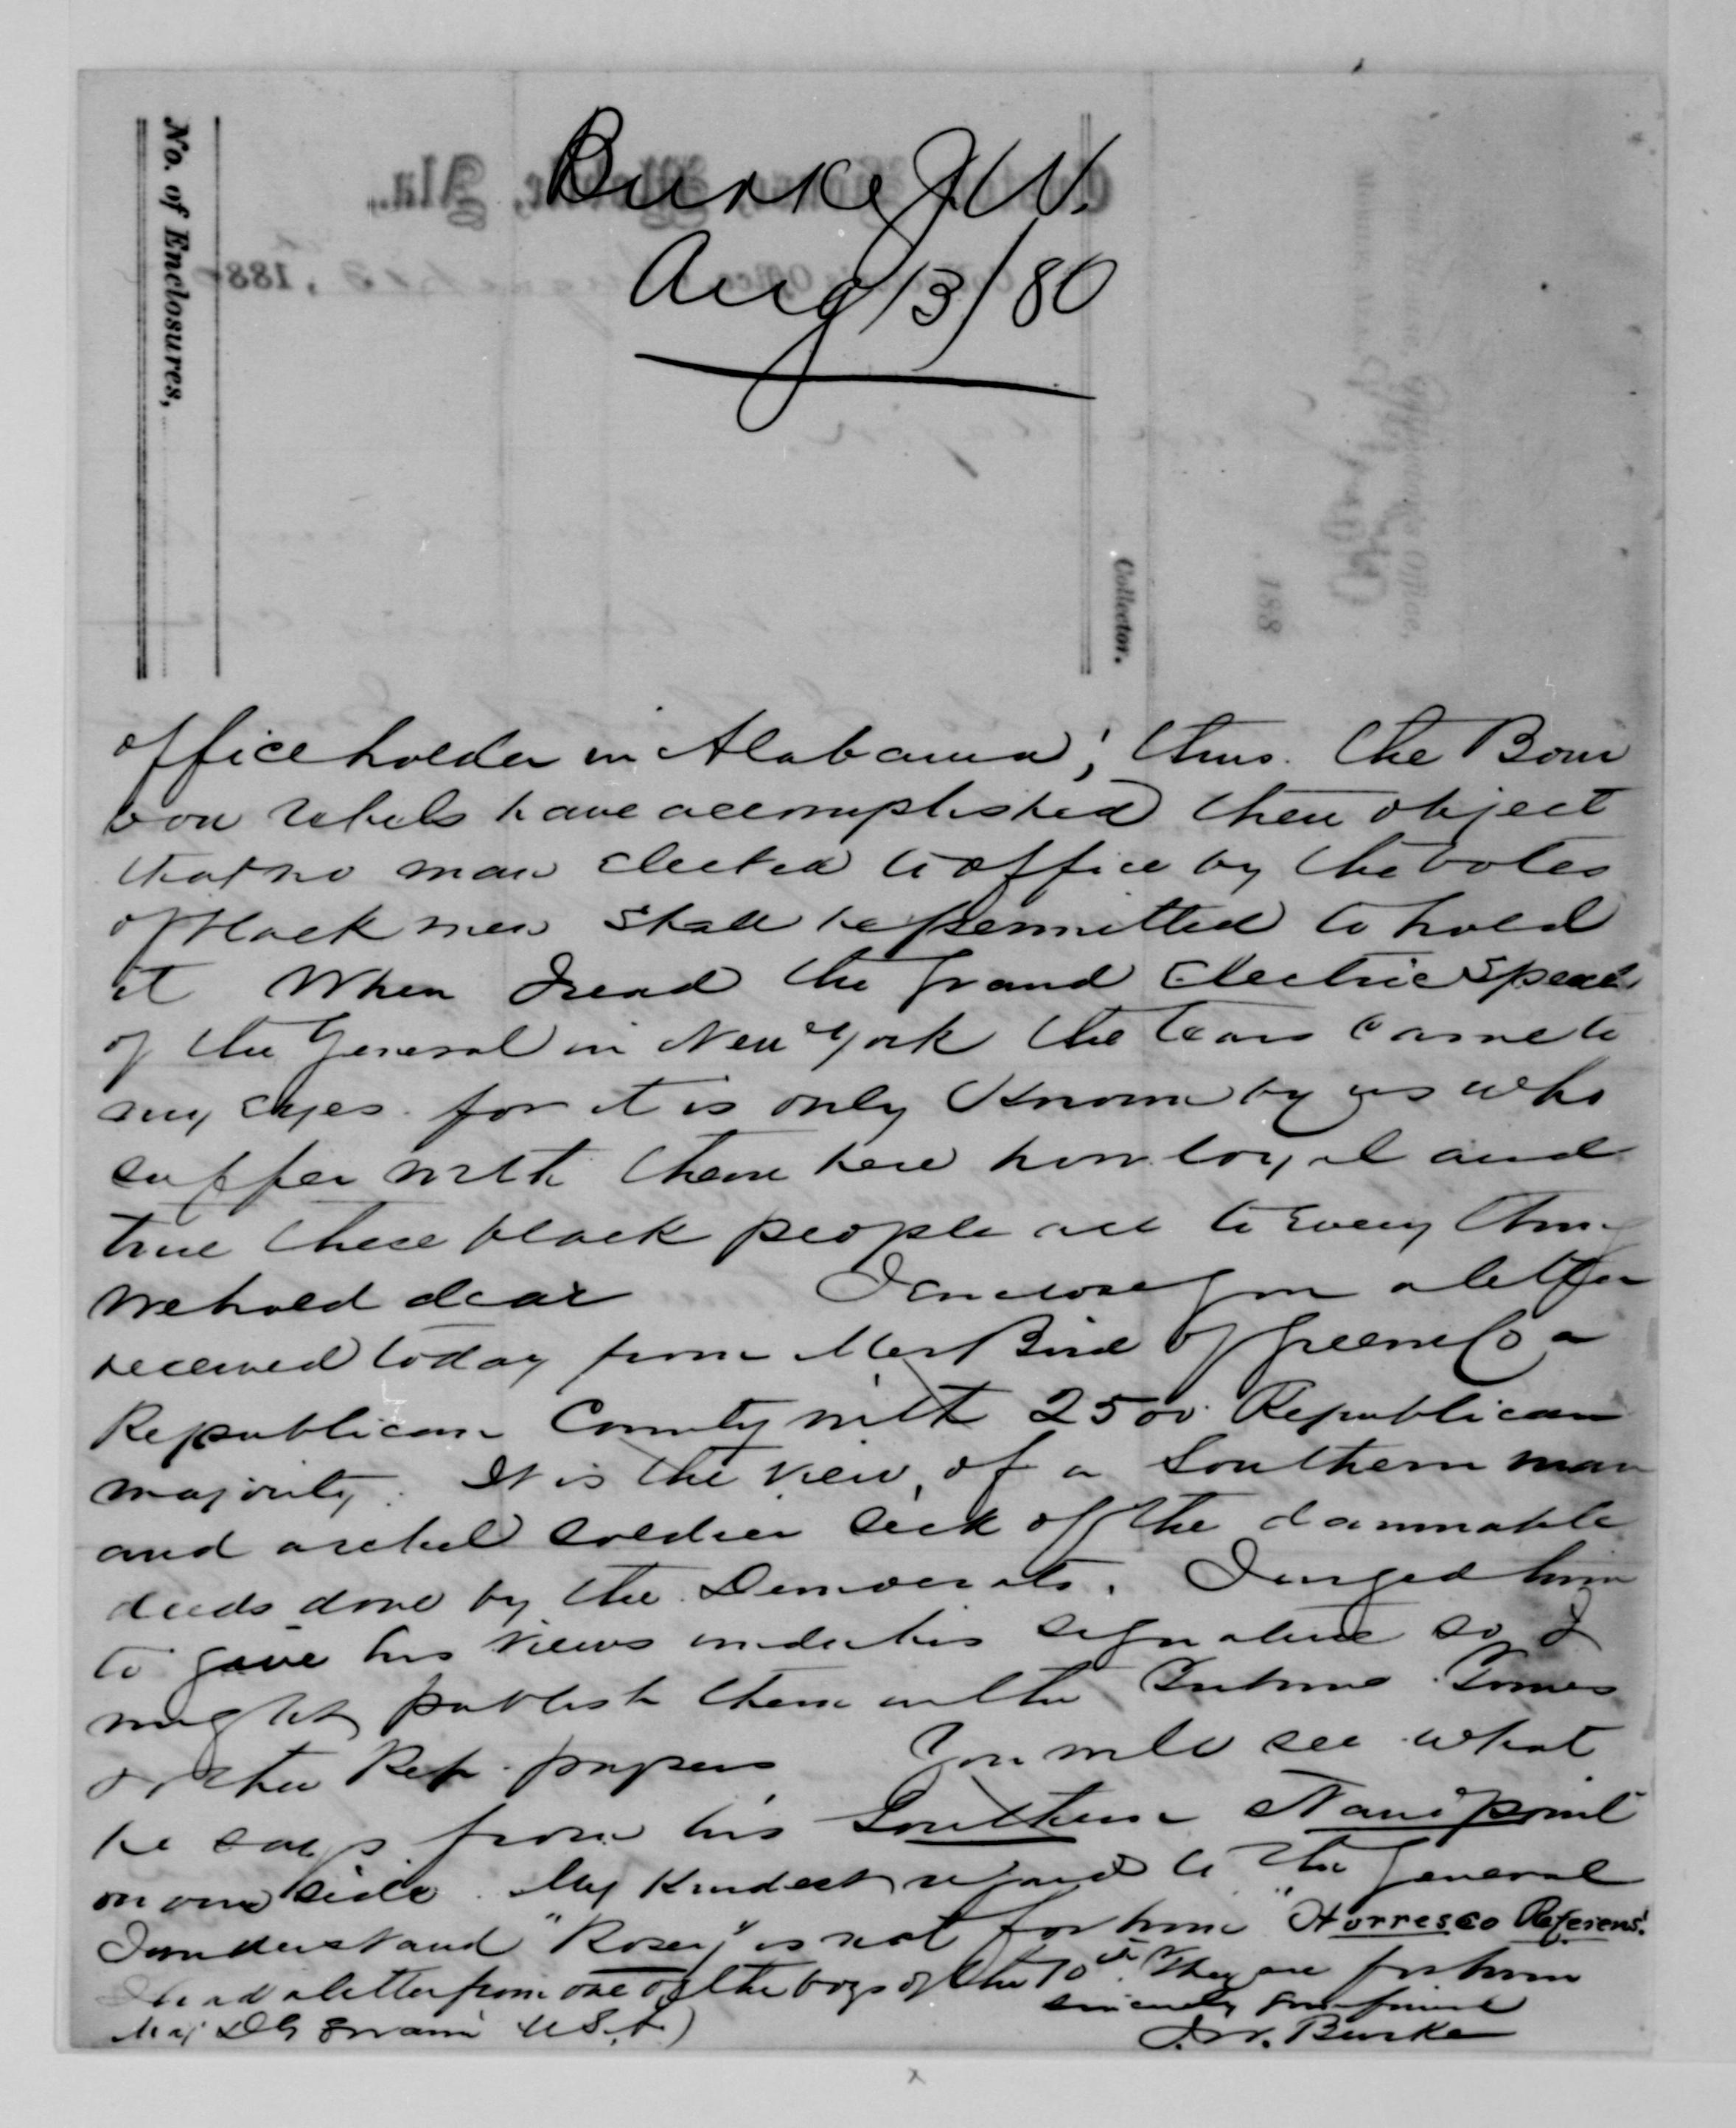 Burke J.W.
Aug 13/80
No. of Enclosures,
Collector.
188
officeholder in Alabama; thus. the Bour
bon rebels have accomplished their object
that no man elected to office by the votes
of black men shall be permitted to hold
it When I read the grand Electric Speech
of the General in New York the tears came to
my eyes. for it is only known by us who
suffer with them here how loyal and
true these black people are to every thing
we hold dear I enclose you a letter
received today from Mr Bird of Greene Co a
Republican County with 2500 Republican
majority. It is the view, of a Southern man
and a rebel soldier sick of the damnable
deeds done by the Democrats. I urged him
to give his views under his signature so I
might publish them in the Times
or other Rep. papers You will see what
he says from his Southern Standpoint
on our side. My Kindest regard to the General
I understand "Rosey" is not for him "Horresco Referens".
I had a letter from one of the boys of the 10th. They are for him
sincerely your friend
Maj D G Swaim U.S.A) J.W. Burke